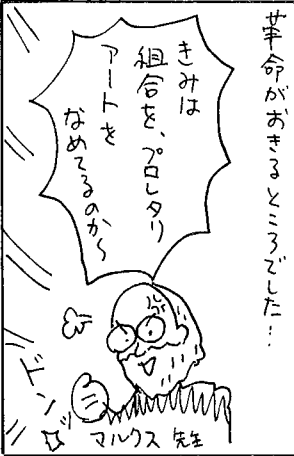 革命がおきるところでした!
きみは
組合を、プロレタリ
アートを
なめてるのか〜
ドンッ
マルクス先生